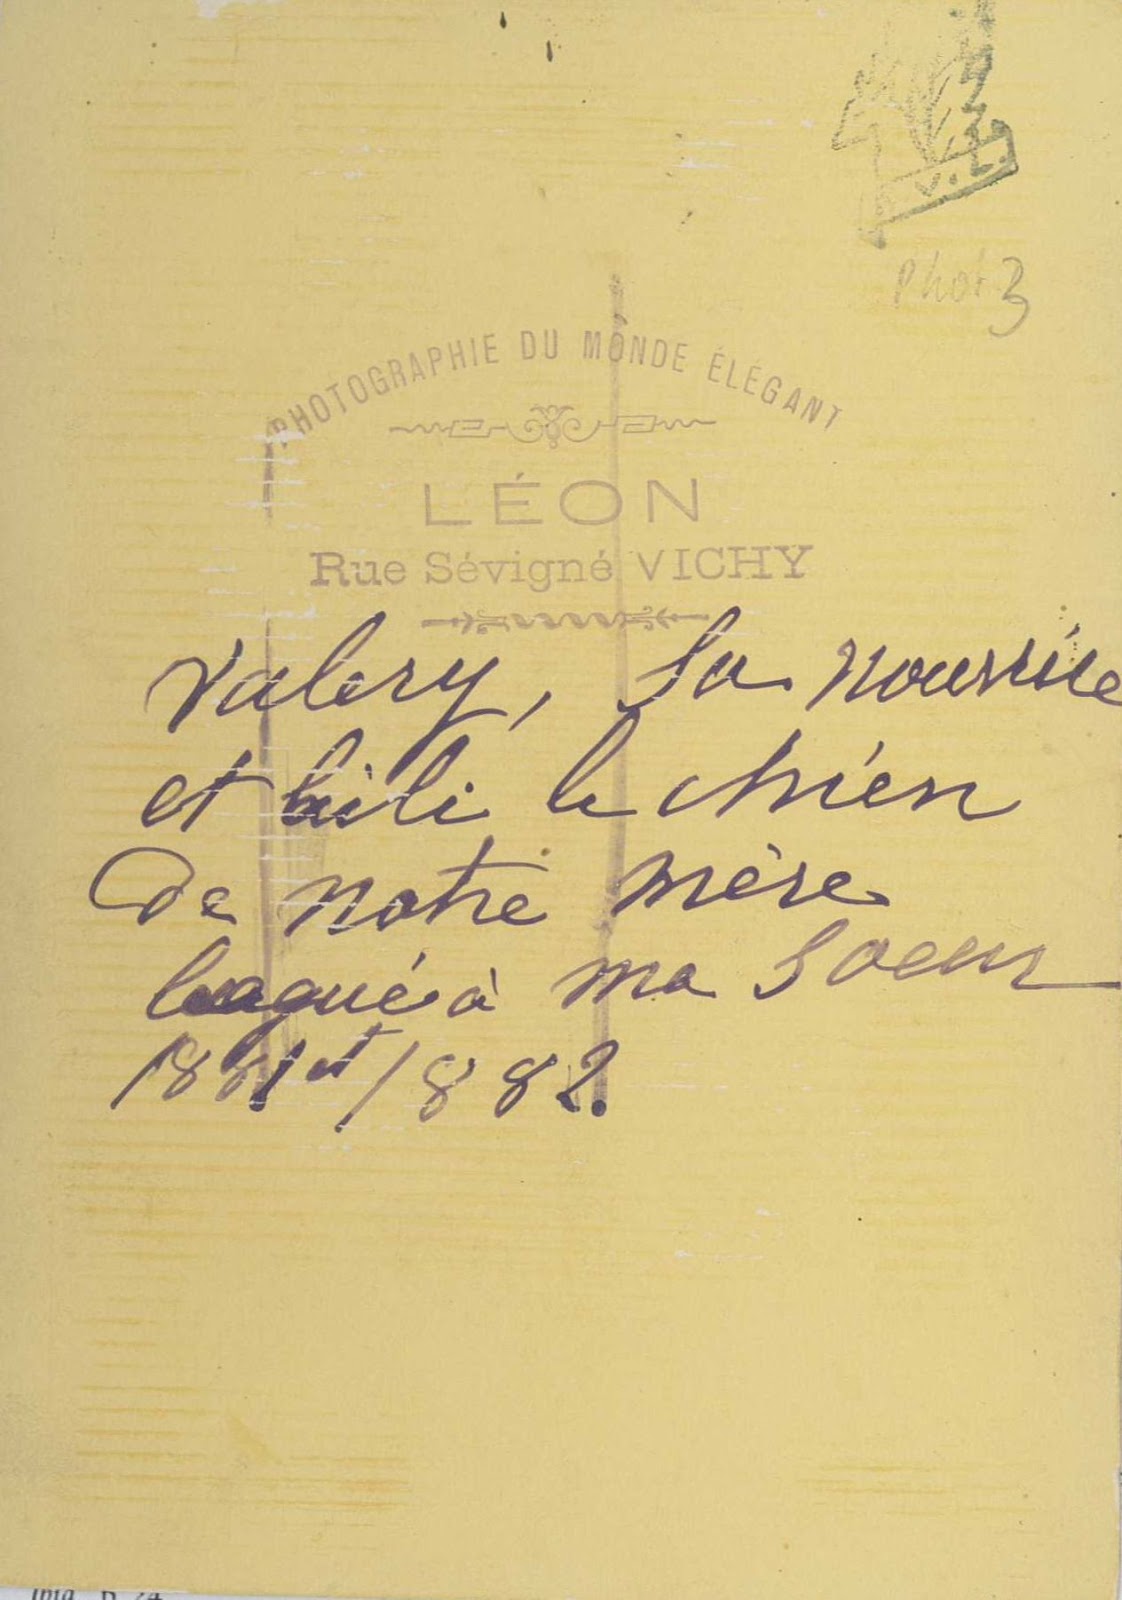 V.L.
Phot 3
PHOTOGRAPHIE DU MONDE ÉLÉGANT
LÉON
Rue Sévigné VICHY
Valery, sa nourrice
et bili le chien
De notre mère
legué à ma Soeur
1881 et 1882.